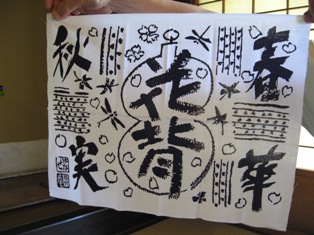 春華
花背
秋実